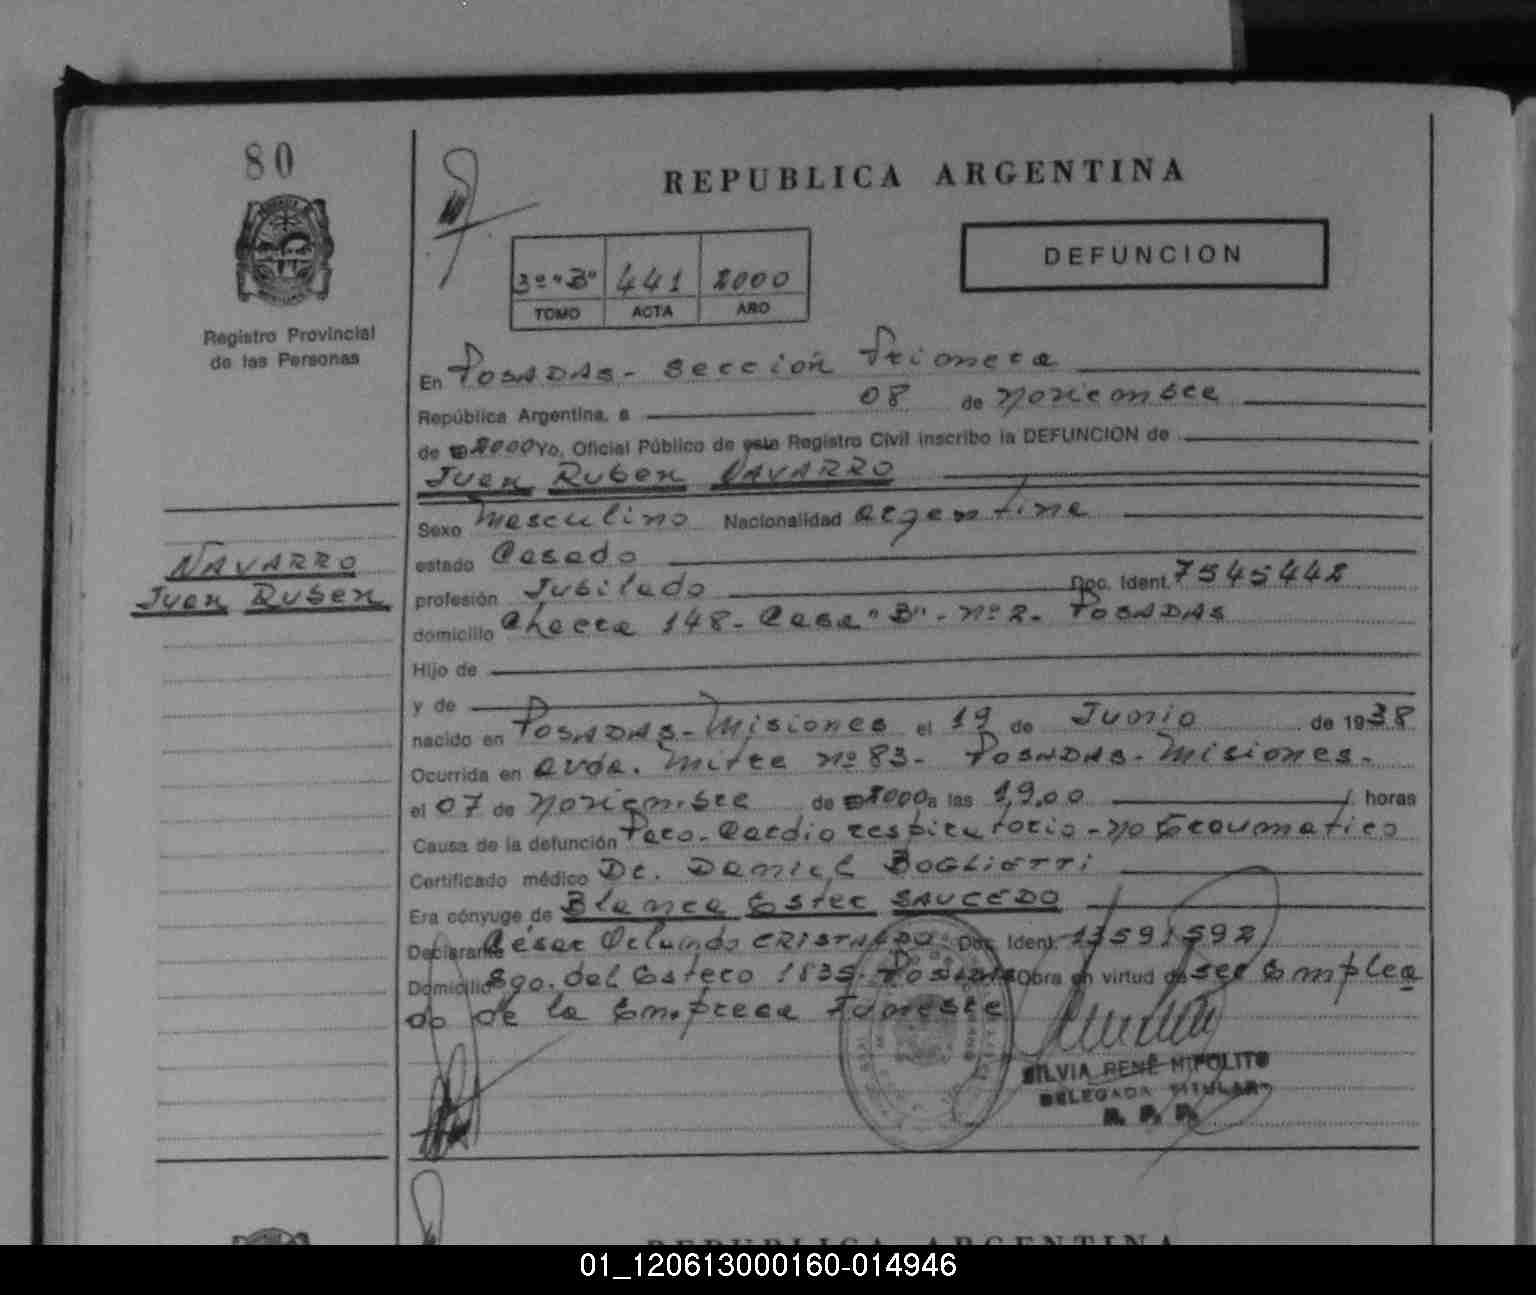 80
REPUBLICA ARGENTINA
DEFUNCION
3º "B" 441 2000
TOMO ACTA AÑO
Registro Provincial
de las Personas
En POSADAS - Sección Primera
República Argentina, a 08 de Noviembre
de 2000 Yo, Oficial Público de este Registro Civil inscribo la DEFUNCION de
Juan Ruben NAVARRO
Sexo Masculino Nacionalidad argentina
NAVARRO
Juan Ruben
estado Casado
profesión Jubilado Doc. Ident. 7545442
domicilio Chacra 148 - Casa "B" - nº 2. POSADAS
Hijo de
y de
nacido en POSADAS - Misiones el 19 de Junio de 1938
Ocurrida en avda. Mitre nº 83 - POSADAS - Misiones.
el 07 de Noviembre de 2000 a las 19,00 horas
Causa de la defunción Paro - Cardiorespiratorio - no traumatico
Certificado médico Dr. Daniel BOGLIOTTI
Era cónyuge de Blanca Ester SAUCEDO
Declarante César Orlando CRISTALDO Doc. Ident. 13591592
Domicilio Sgo. del Estero 1835 - Posadas Obra en virtud de ser Emplea
do de la Empresa Funebre
SILVIA RENÉ HIPOLITO
DELEGADA TITULAR
R. P. P.
REPUBLICA ARGENTINA
01_120613000160-014946